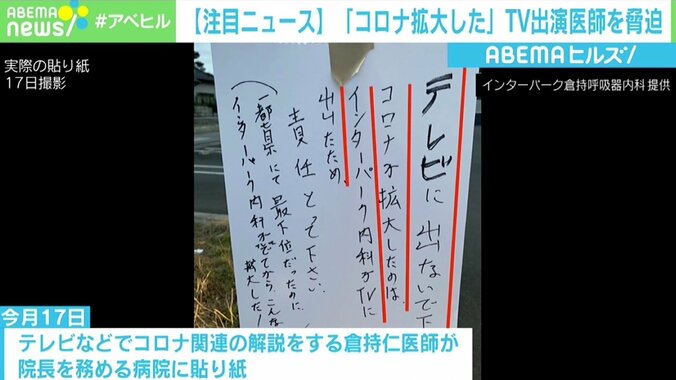 ABEMA
NEWS/
#アベヒル
【注目ニュース】「コロナ拡大した」TV出演医師を脅迫
ABEMAヒルズ
実際の貼り紙
17日撮影
インターパーク倉持呼吸器内科 提供
テレビに出ないで下
コロナが拡大したのは
インターパーク内科がTVに
出たため、
責任とって下さい
(一都
県にて最下位だったのに、
インターパーク内科が
てから、こんな
拡大した!
今月17日
テレビなどでコロナ関連の解説をする倉持仁医師が
院長を務める病院に貼り紙